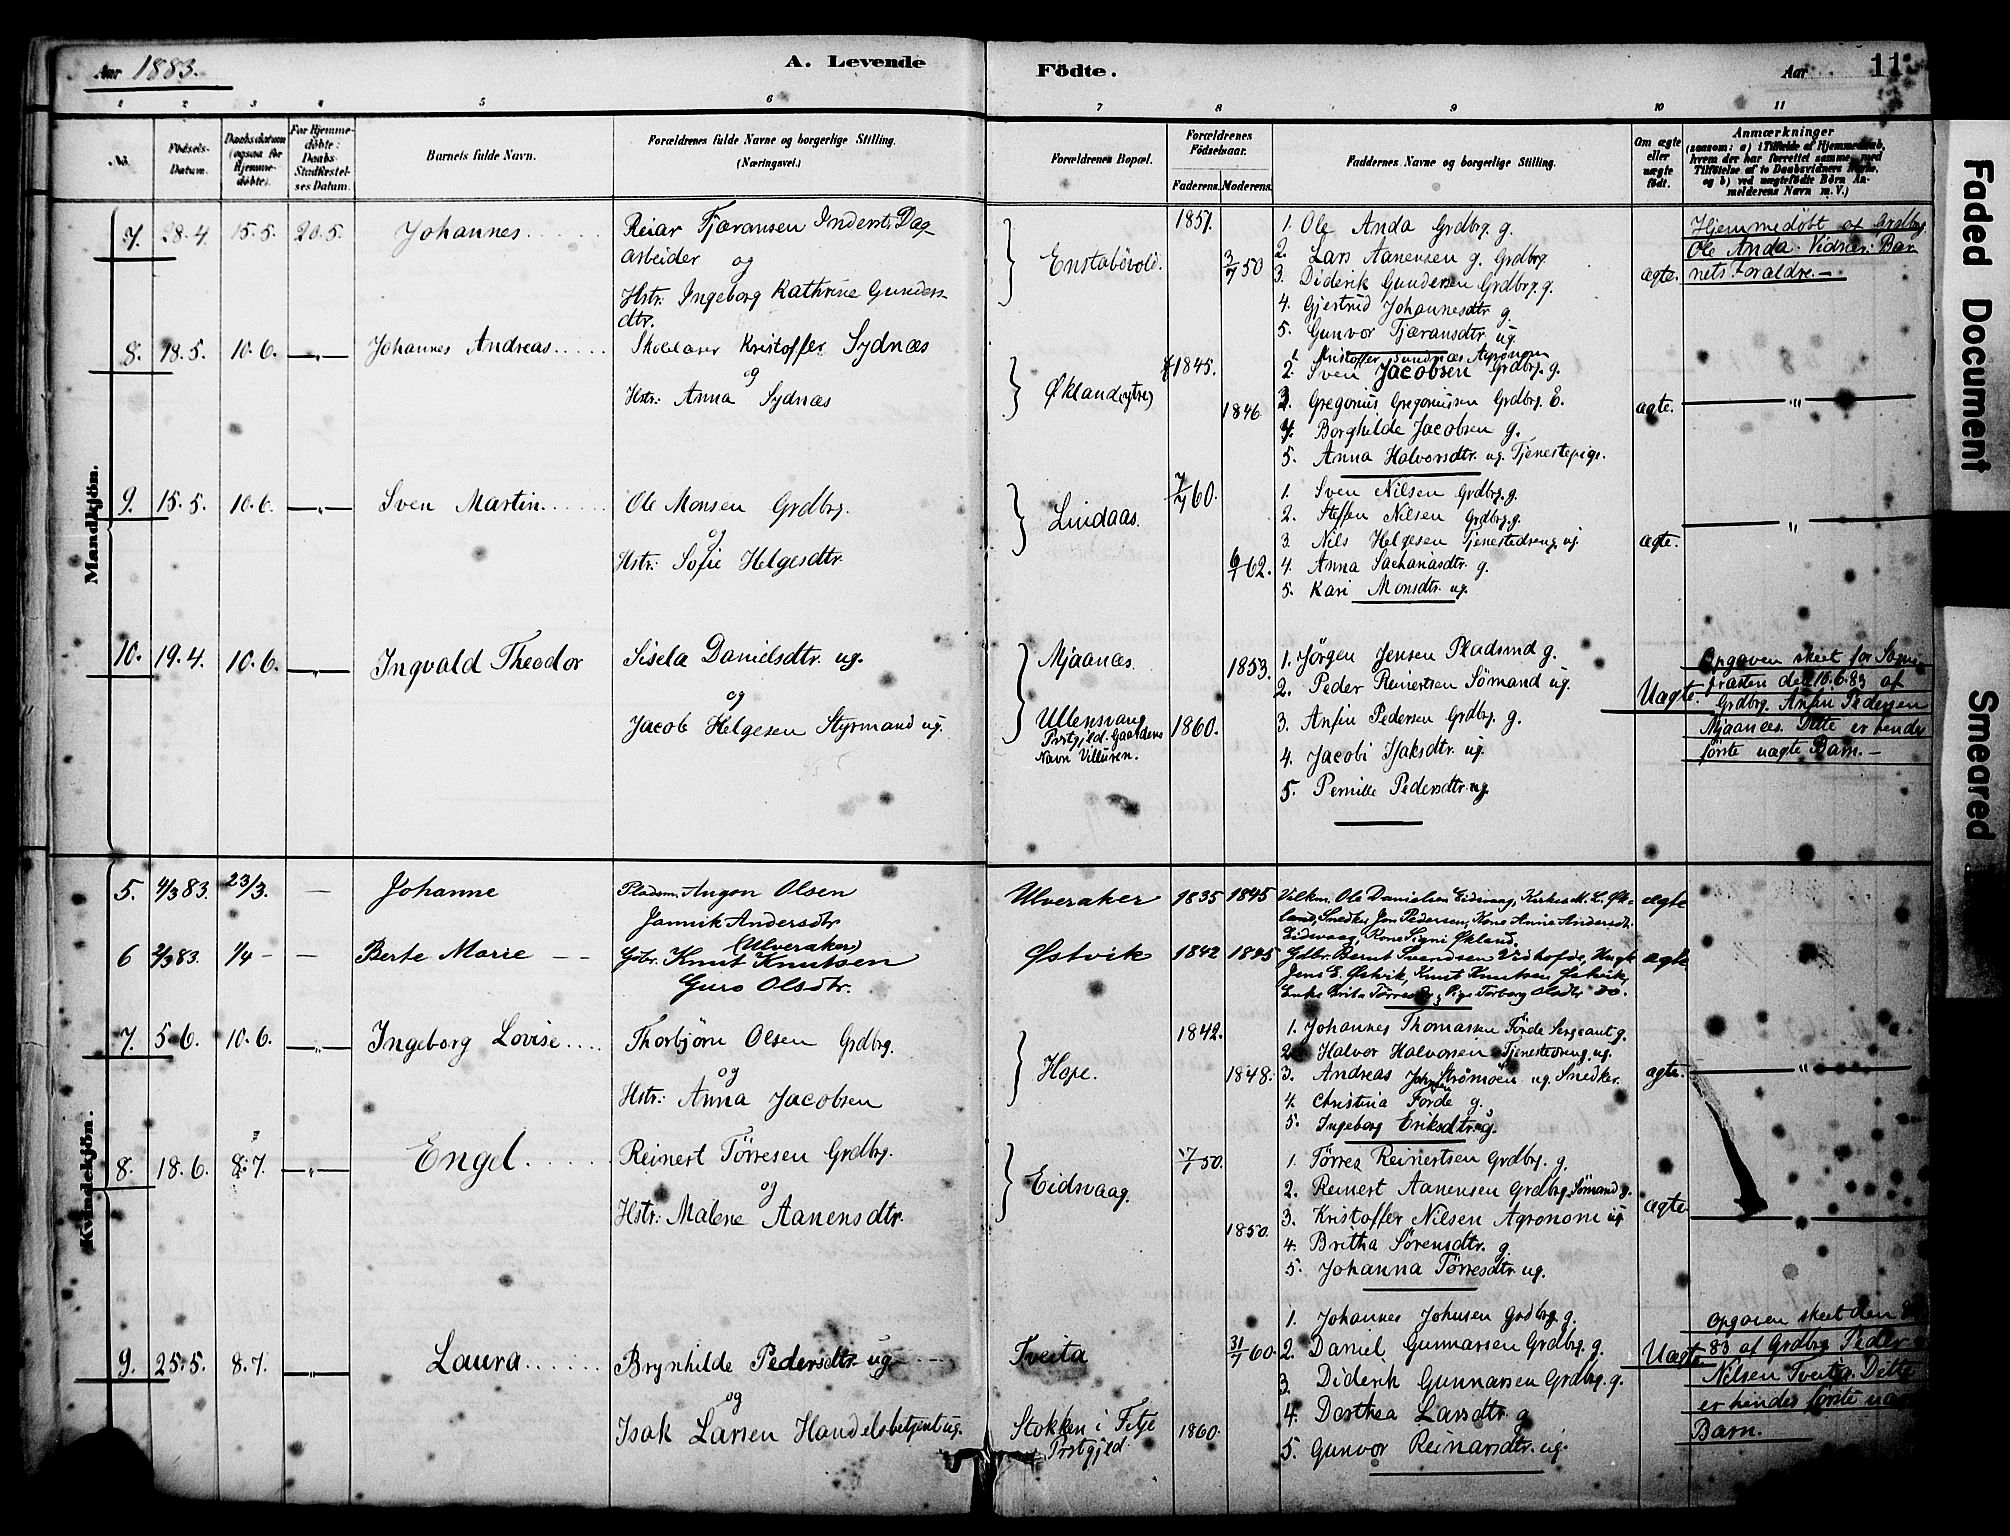 Aar 1883.
A. Levende
Födte.
Aar
11
1 2 3 4 5 6 7 8 9 10 11
No.
Födsels-
Datum.
Daabsdatum
(ogsaa for
Hjemme-
döbte).
For Hjemme-
döbte:
Daabs-
Stadfæstel-
ses Datum.
Barnets fulde Navn.
Forældrenes fulde Navne og borgerlige Stilling.
(Næringsvei.)
Forældrenes Bopæl.
Forældrenes
Födselsaar.
Faderens. Moderens.
Faddernes Navne og borgerlige Stilling.
Om ægte
eller
uægte
födt.
Anmærkninger
(saasom: a) i Tilfælde af Hjemmedaab,
hvem der har forrettet samme, med
Tilföielse af to Daabsvidners Navne,
og b) ved uægtefödte Börn An-
melderens Navn m. V.)
Mandkjön.
7. 28.4. 15.5. 20.5. Johannes
Reiar Tjæransen Inderst. Dag
arbeider og
Hstr: Ingeborg Kathrine Gunders-
dtr.
Enstabövold.
1851.
3/7 50
1. Ole Anda Grdbrg. g.
2. Lars Aanensen g. Grdbrg.
3. Diderik Gundersen Grdbrg. g.
4. Gjertrud Johannesdtr g.
5. Gunvor Tjæransdtr. ug.
ægte.
Hjemmedöbt af Grdbrg.
Ole Anda. Vidner: Bar
nets Forældre.—
8. 18.5. 10.6. —"— Johannes Andreas
Skolelærer Kristoffer Sydnæs
og
Hstr: Anna Sydnæs
Økland (ytre)
1845.
1846.
1. Kristoffer Sundnæs Agronom
2. Sven Jacobsen Grdbrg. g.
3. Gregorius Gregoriussen Grdbrg. E.
4. Borghilde Jacobsen g.
5. Anna Halvorsdtr. ug. Tjenestepige.
ægte.
—"—
9. 15.5. 10.6. —"— Sven Martin
Ole Monsen Grdbrg.
og
Hstr: Sofie Helgesdtr.
Lindaas.
7/7 60.
6/1 62.
1. Sven Nilsen Grdbrg. g.
2. Steffen Nilsen Grdbrg. g.
3. Nils Helgesen Tjenestedreng ug.
4. Anna Sachariasdtr. g.
5. Kari Monsdtr. ug.
ægte.
—"—
10. 19.4. 10.6. —"— Ingvald Theodor
Sisela Danielsdtr. ug.
og
Jacob Helgesen Styrmand ug.
Mjaanæs.
Ullensvang
Prstgjeld. Gaardens
Navn Villuren.
1853.
1860.
1. Jörgen Jensen Pladsmd g.
2. Peder Reinertsen Sömand ug.
3. Anfin Pedersen Grdbrg. g.
4. Jacobi Isaksdtr. ug.
5. Pernille Pedersdtr. ug.
Uægte.
Opgaven skeet for Sogne
præsten den 10.6.83 af
Grdbrg. Anfin Pedersen
Mjaanæs. Dette er hendes
förste uægte Barn.—
Kvindekjön.
5. 4/3 83. 23/3. — Johanne
Pladsm. Angon Olsen
Jannik Andersdtr
(Ulveraker)
Ulveraker
1835 1845
Vilkm. Ole Danielsen Eidsvaag, Kirkes. M. L. Øk-
land, Snedker Jon Pedersen, Kone Anne Andersdtr.
Eidsvaag, Kone Signi Økland.
ægte
6 2/3 83. 1/4 — — Berte Marie — —
Gbr. Knut Knutsen
Guro Olsdtr.
Østvik
1842 1845
Gdbr. Bernt Svendsen Vidhofde,
Jens E. Østvik, Knut Knutsen Østvik,
Enke Brita Tørresdtr, Pige Torborg Olsdtr do.
ægte
7. 5.6. 10.6. —"— Ingeborg Lovise
Thorbjörn Olsen Grdbrg.
og
Hstr: Anna Jacobsen
Hope.
1842.
1848.
1. Johannes Thomassen Förde Sergeant g.
2. Halvor Halvorsen Tjenestedreng ug.
3. Andreas Johnsen Strömoen ug. Snedker.
4. Christina Förde g.
5. Ingeborg Eriksdtr ug.
ægte.
—"—
8. 18.6. 8.7. —"— Engel
Reinert Törresen Grdbrg.
og
Hstr: Malene Aanensdtr.
Eidsvaag.
7/7 50.
1850.
1. Törres Reinertsen Grdbrg. g.
2. Reinert Aanensen Grdbrg. Sömand g.
3. Kristoffer Nilsen Agronom ug
4. Britha Sörensdtr. g.
5. Johanna Törresdtr. ug.
ægte.
9. 25.5. 8.7. —"— Laura
Brynhilde Pedersdtr. ug.
og
Isak Larsen Handelsbetjent ug.
Tveita
Stokken i Fitje
Prstgjeld.
1860.
31/7 60.
1. Johannes Johnsen Grdbrg. g.
2. Daniel Gunnarsen Grdbrg. g.
3. Diderik Gunnarsen Grdbrg. g.
4. Dorthea Larsdtr. g.
5. Gunvor Reinarsdtr. ug.
Uægte
Opgaven skeet den
83 af Grdbrg. Peder
Nilsen Tveita. Dette
er hendes förste uægte
Barn.
Faded Document
Smeared